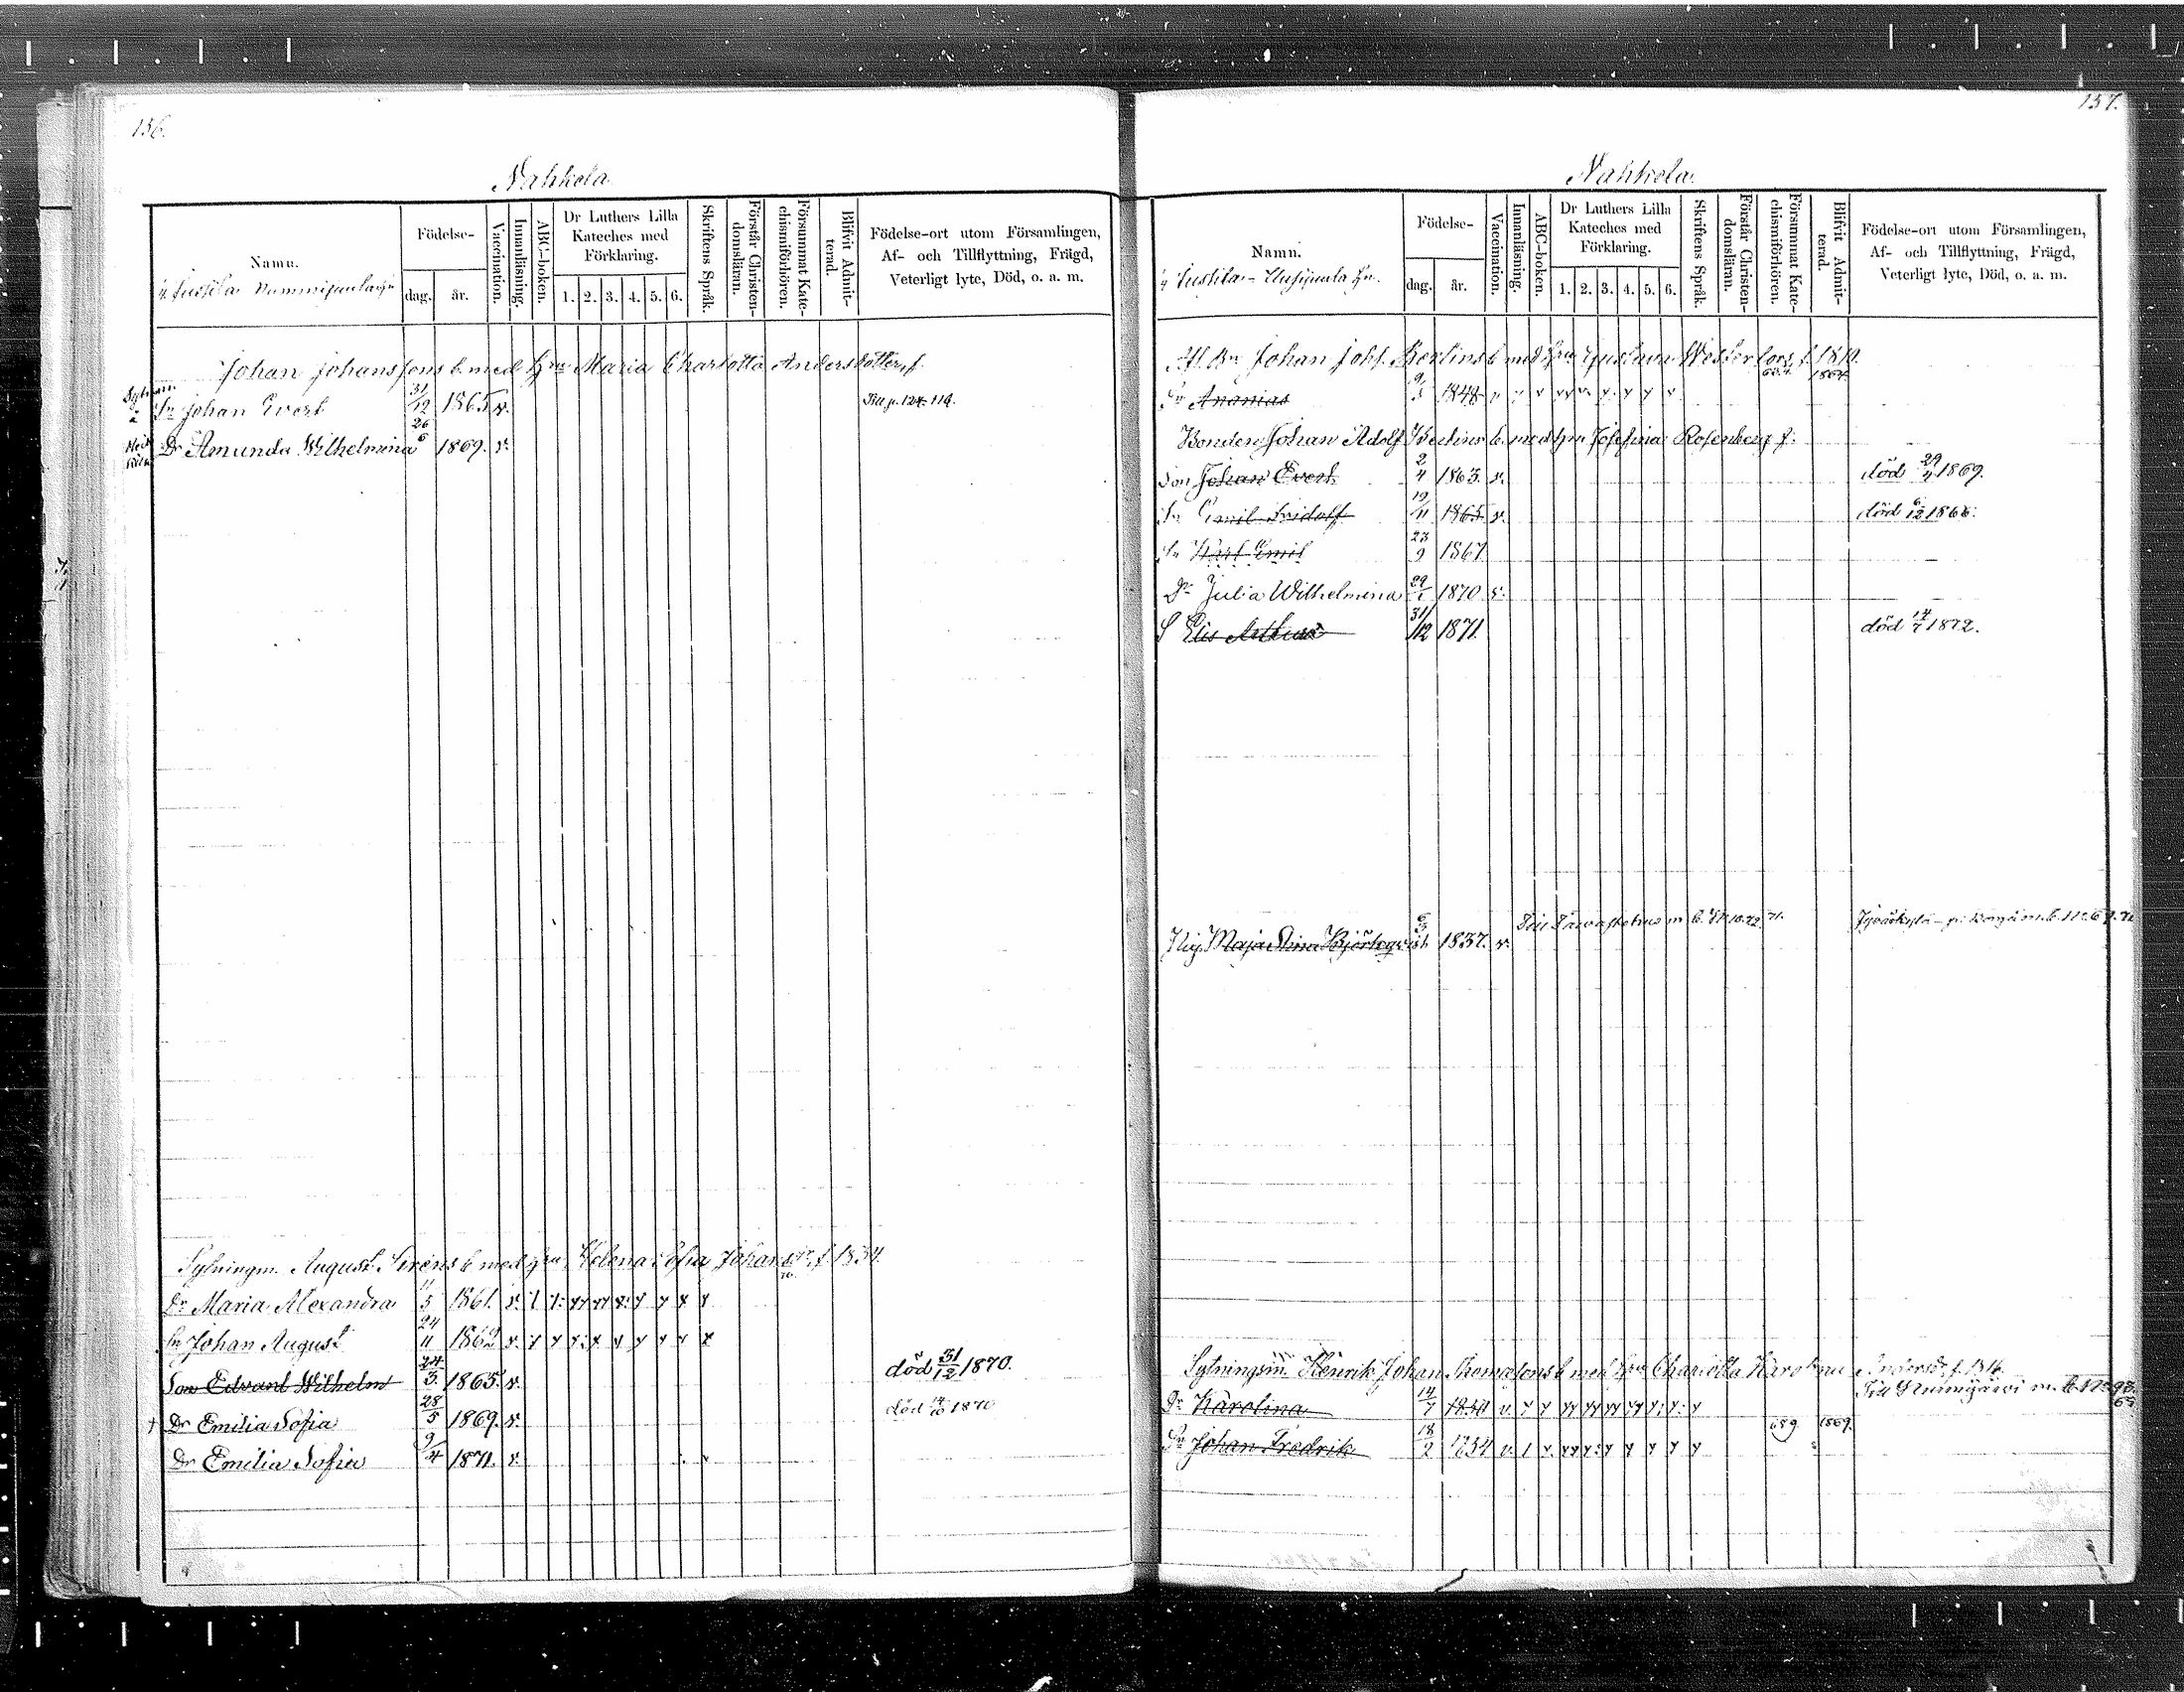 156.
Nahkola
Namn.
Födelse-
dag.
år.
Vaccination.
Innanläsning.
ABC-boken.
Dr Luthers Lilla Kateches med Förklaring.
1. 2. 3. 4. 5. 6.
Skriftens Språk.
Förstår Christendomsläran.
Försummat Katechismiförhören.
Blifvit Admitterad.
Födelse-ort utom Församlingen,
Af- och Tillflyttning, Frägd,
Veterligt lyte, Död, o. a. m.
Johan Johanssons b. med hu Maria Charlotta Andersdotter, f.
Sn Johan Evert 31/12 1865 v. Till p. 124. 119.
Dr Amanda Wilhelmina 26/5 1869. v.
Sytningm. August Sirens b med hu Helena Sofia Johansdr f. 1834.
Dr Maria Alexandra 11/5 1861. v.
Sn Johan August 24/11 1862 v.
Son Edvard Wilhelm 24/3 1865. v. död 31/12 1870.
+ Dr Emilia Sofia 28/5 1869. v. död 14/10 1870
Dr Emilia Sofia 9/4 1871. v.
157.
Nahkola.
Namn.
Födelse-
dag.
år.
Vaccination.
Innanläsning.
ABC-boken.
Dr Luthers Lilla Kateches med Förklaring.
1. 2. 3. 4. 5. 6.
Skriftens Språk.
Förstår Christendomsläran.
Försummat Katechismiförhören.
Blifvit Admitterad.
Födelse-ort utom Församlingen,
Af- och Tillflyttning, Frägd,
Veterligt lyte, Död, o. a. m.
Johan Johs. Berlins b med hu Gustava Westerfors f. 1810.
Sn Ananias 1848 v 1864.
Bonden Johan Adolf Berlins b. med hu Josefina Rosenberg f.
Son Johan Evert 2/4 1863. v. död 29/4 1869.
Sn Emil Fridolf 19/11 1865 v. död 6/12 1868.
Sn Karl Emil 23/9 1867.
Dr Julia Wilhelmina 29/1 1870 v.
S Elis Arthur 31/12 1871. död 14/7 1872.
Pig. Maja Stina Björkqvist 1837. v. Till Tavastehus m. b.
Sytningsm. Henrik Johan Thomassons b med hu Charlotta Karolina Andersdr f. 1814.
Dr Karolina 14/7 1850 v
Sn Johan Fredrik 18/2 1854 v 1869.